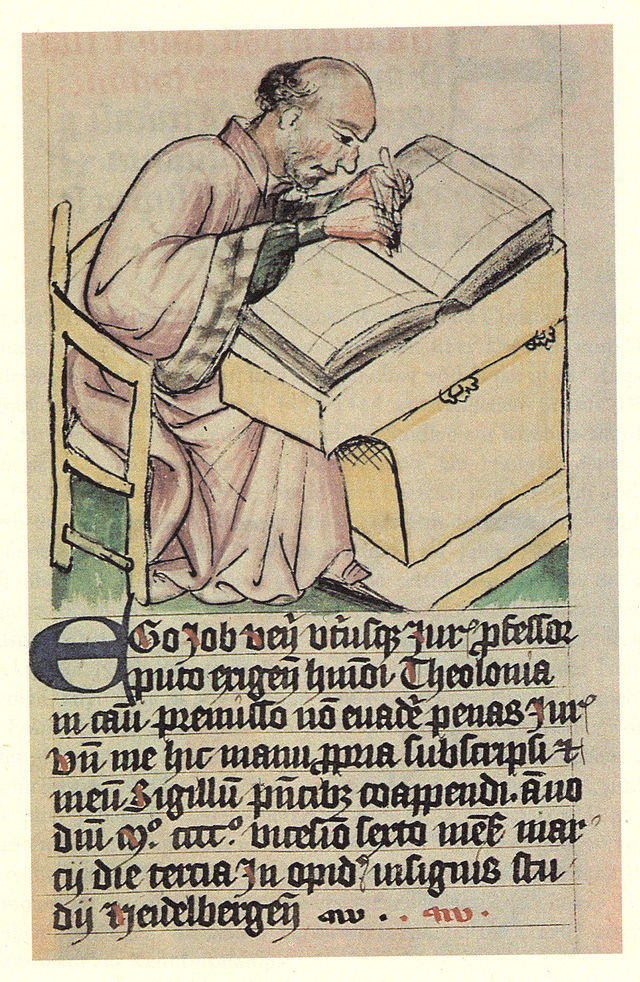 EGo Job veñ vtͥusqꝫ Jurꝭ ꝓfessor
puto exigeñ hmōi Theolonia
in caū premisso nō euadē penas Jurꝭ
vñ me hic manu ꝓpria subscripsi ⁊
meū Sigillū pn̄tibꝫ coappendi. āno
dn̄i mº. ccccº. vicesīo sexto mēs̄ mar
cij die tercia Jn opidꝰ insignis stu
dij Heidelbergeñ